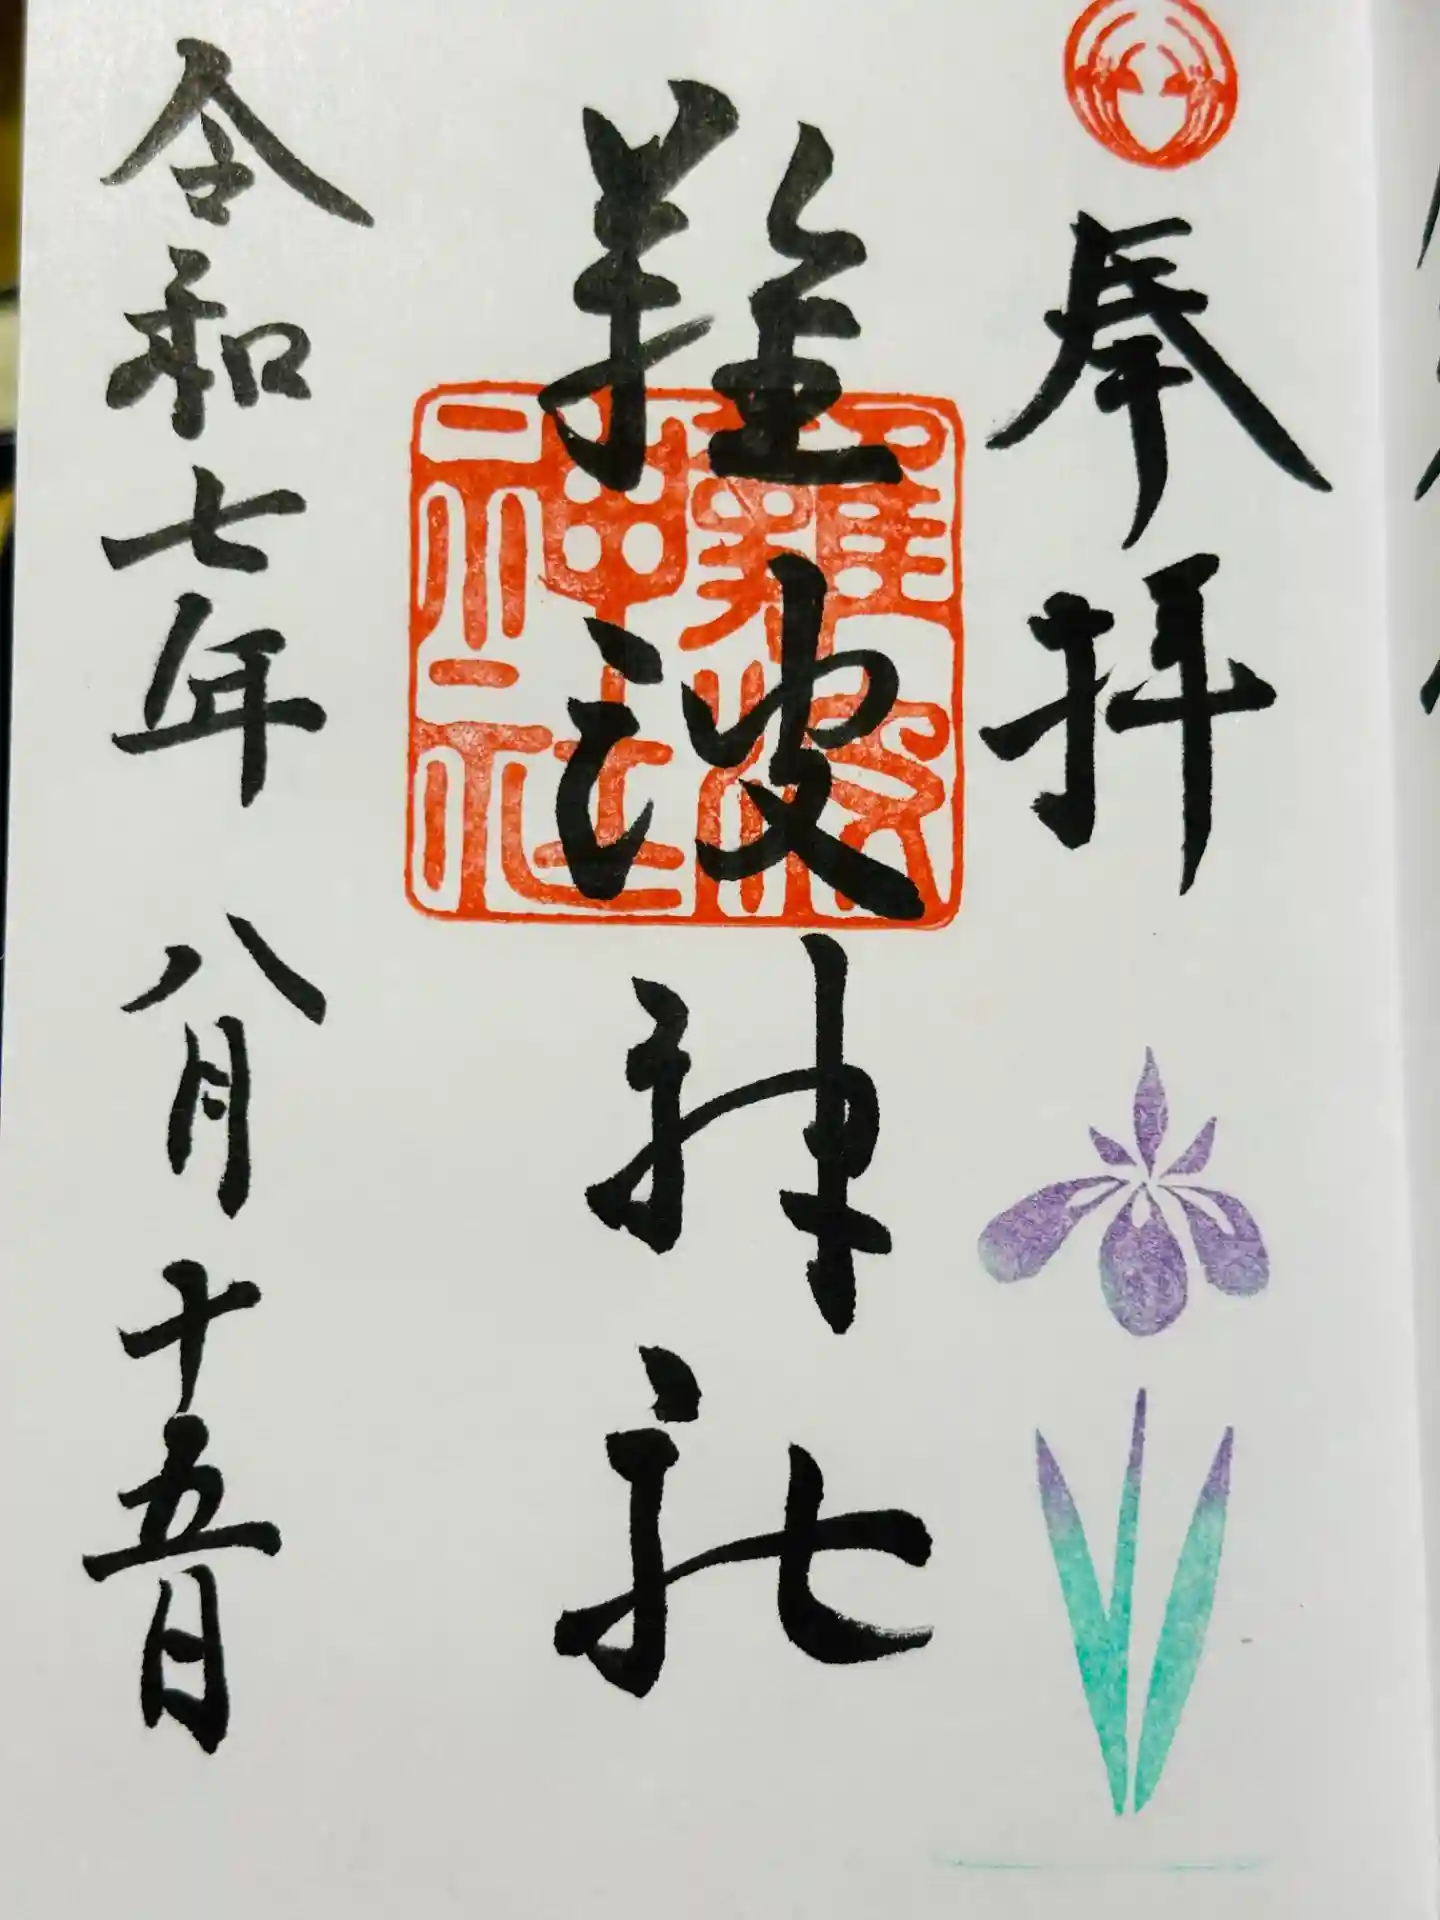 奉拝
難波神社
難波神社
令和七年八月十五日